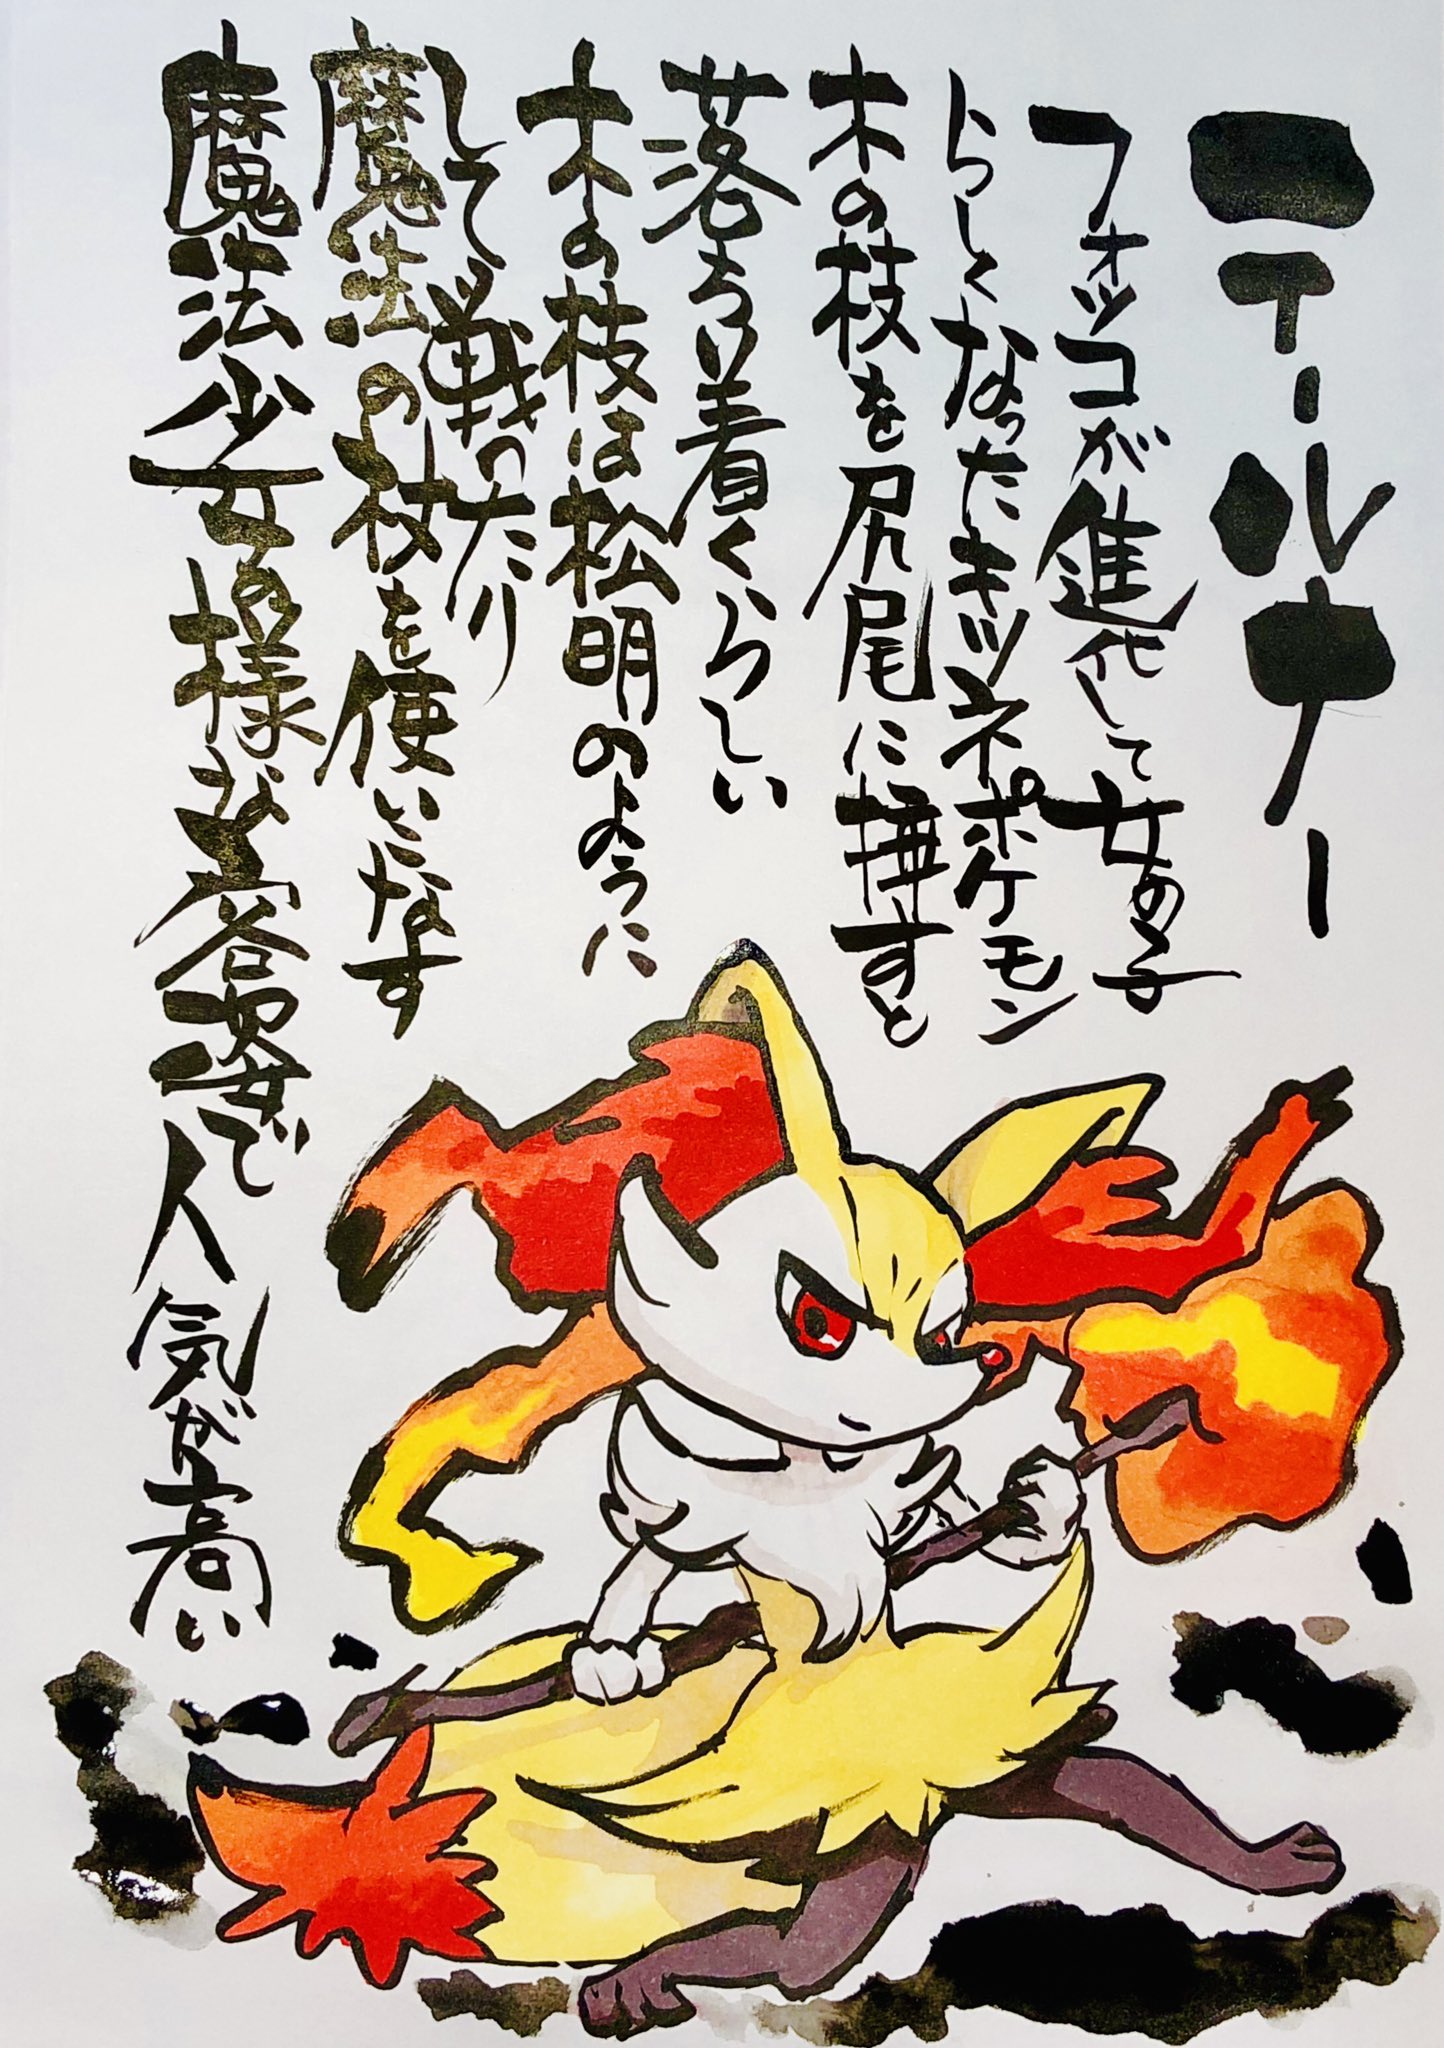 テールナー
フォッコが進化して女の子
らしくなったキツネポケモン
木の枝を尻尾に挿すと
落ち着くらしい
木の枝は松明のように
して戦ったり
魔法の杖を使いこなす
魔法少女の様な容姿で人気が高い